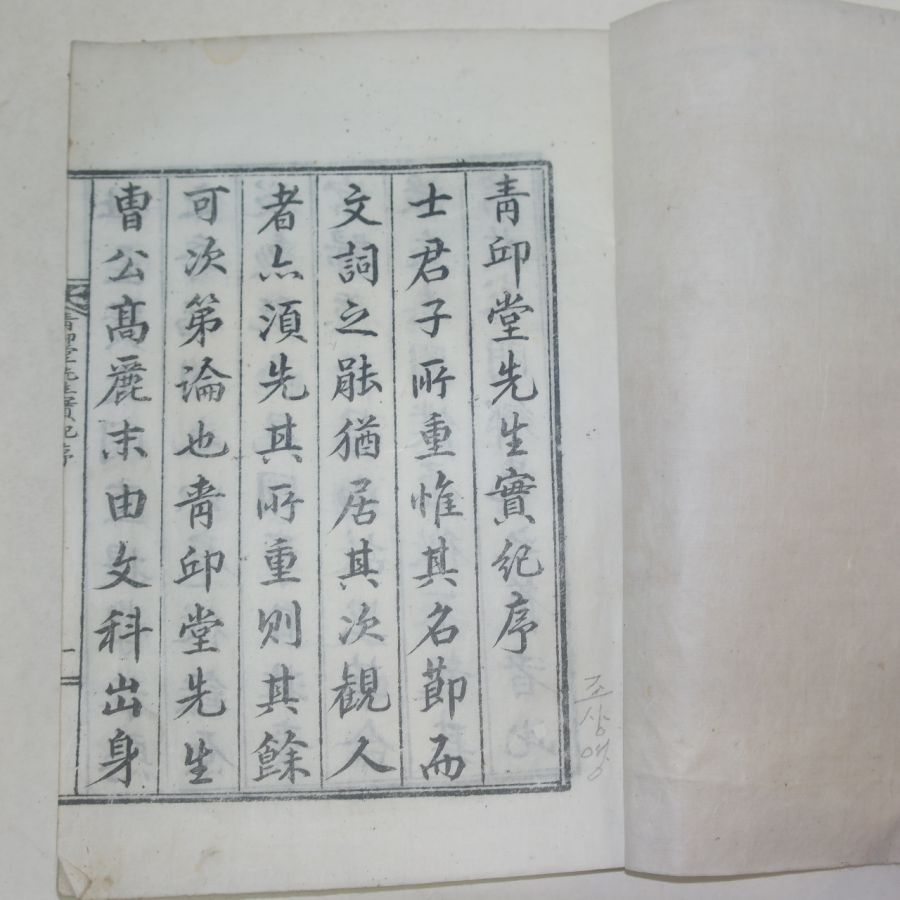 青邱堂先生實紀序
士君子所重惟其名節而
文詞之能猶居其次觀人
者亦須先其所重則其餘
可次第論也青邱堂先生
曺公髙麗末由文科出身
青邱堂先生實紀序
一
조상영